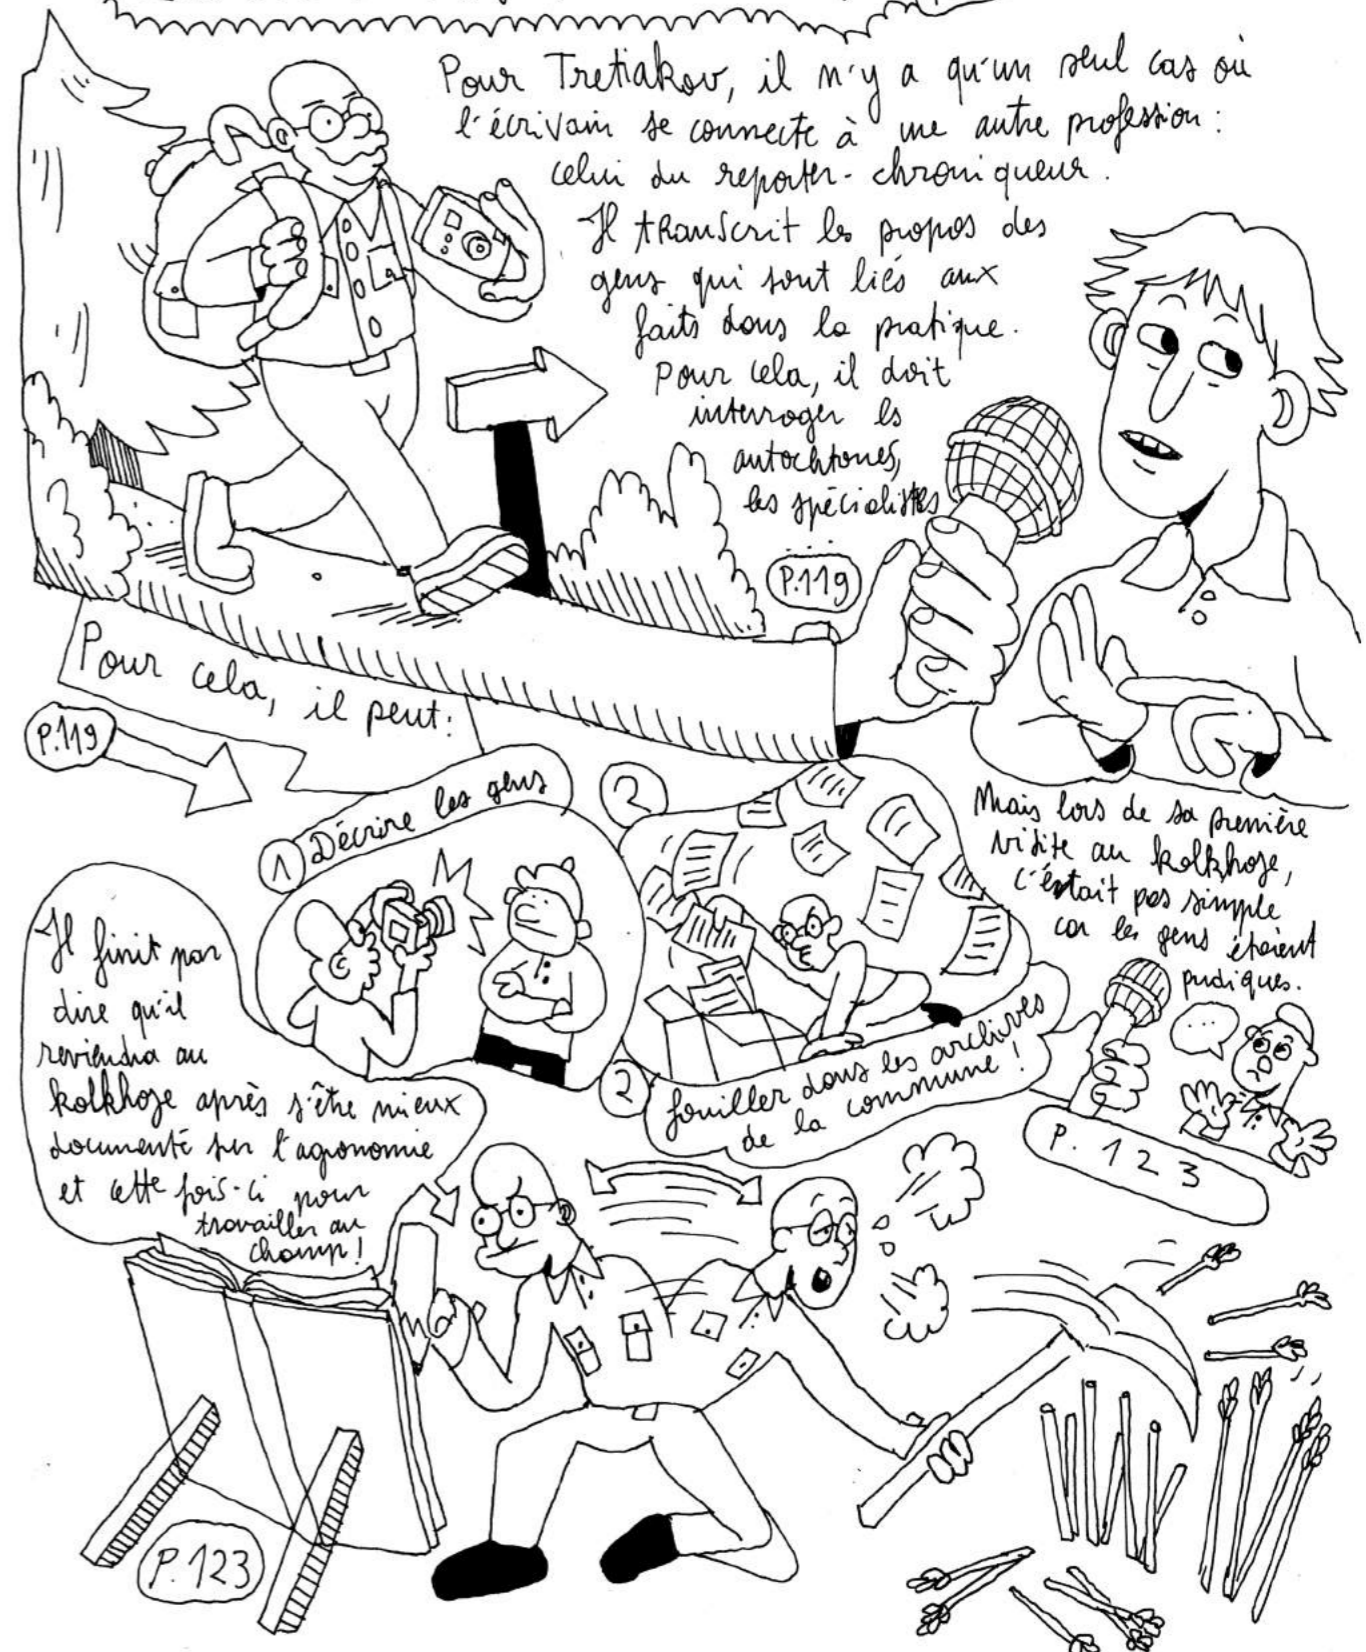 Pour Tretiakov, il n'y a qu'un seul cas où
l'écrivain se connecte à une autre profession :
celui du reporter-chroniqueur.
Il transcrit les propos des
gens qui sont liés aux
faits dans la pratique.
Pour cela, il doit
interroger les
autochtones,
les spécialistes
...
P.119
Pour cela, il peut :
P.119
1 Décrire les gens
2
2 fouiller dans les archives
de la commune !
Mais lors de sa première
visite au kolkhoze,
c'était pas simple
car les gens étaient
pudiques.
...
P. 123
Il finit par
dire qu'il
reviendra au
kolkhoze après s'être mieux
documenté sur l'agronomie
et cette fois-ci pour
travailler au
champ !
P.123